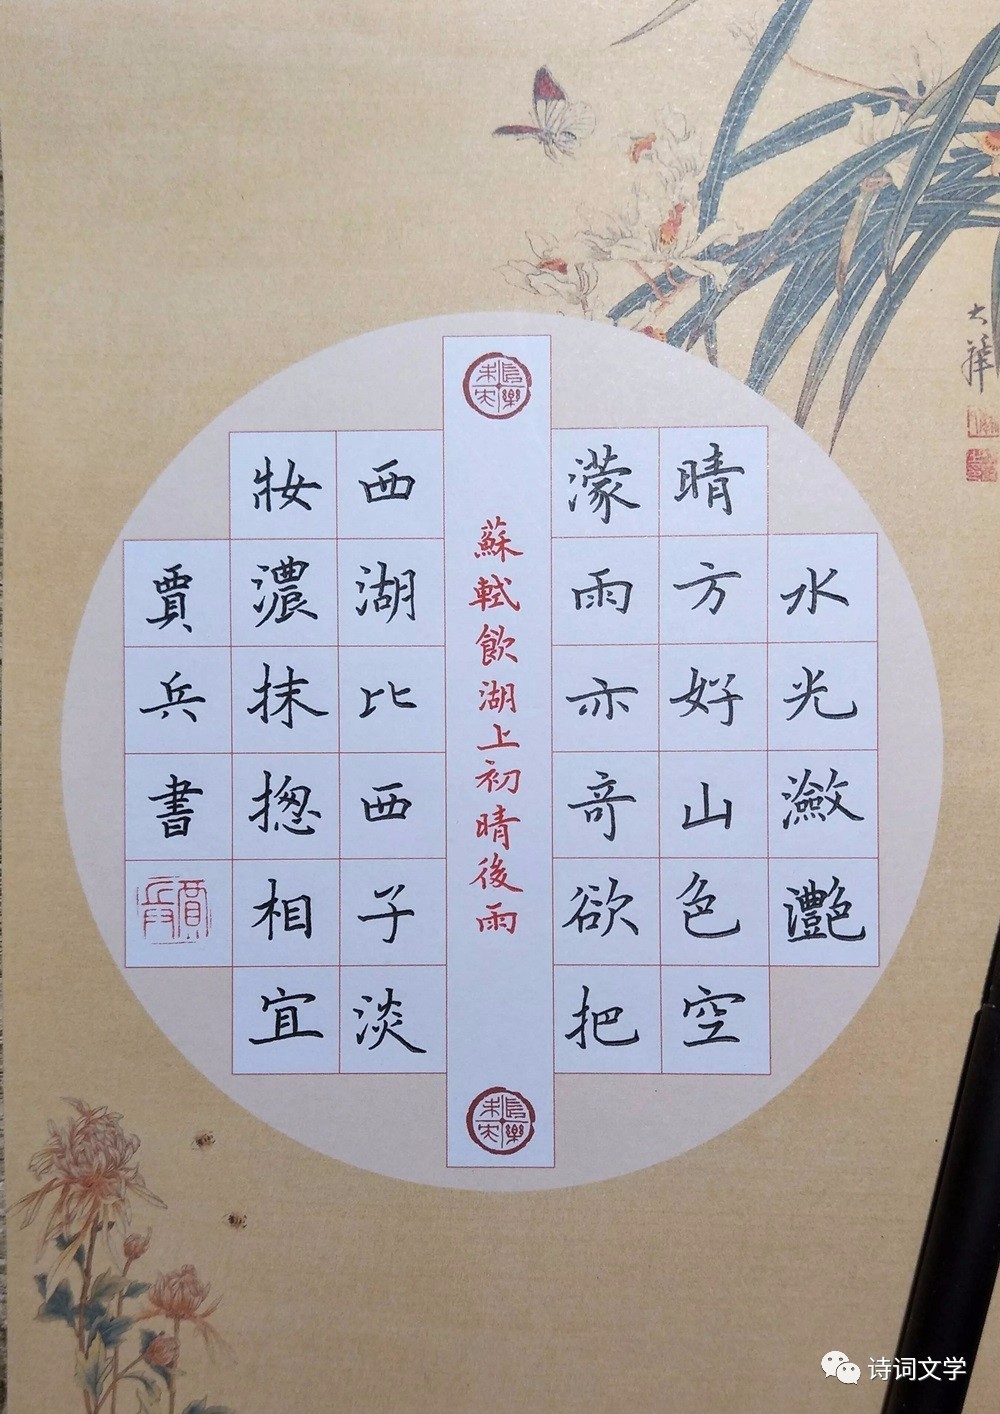 水光瀲灩
晴方好山色空
濛雨亦奇欲把
蘇軾飲湖上初晴後雨
西湖比西子淡
妝濃抹揔相宜
賈兵書
長樂未央
長樂未央
诗词文学